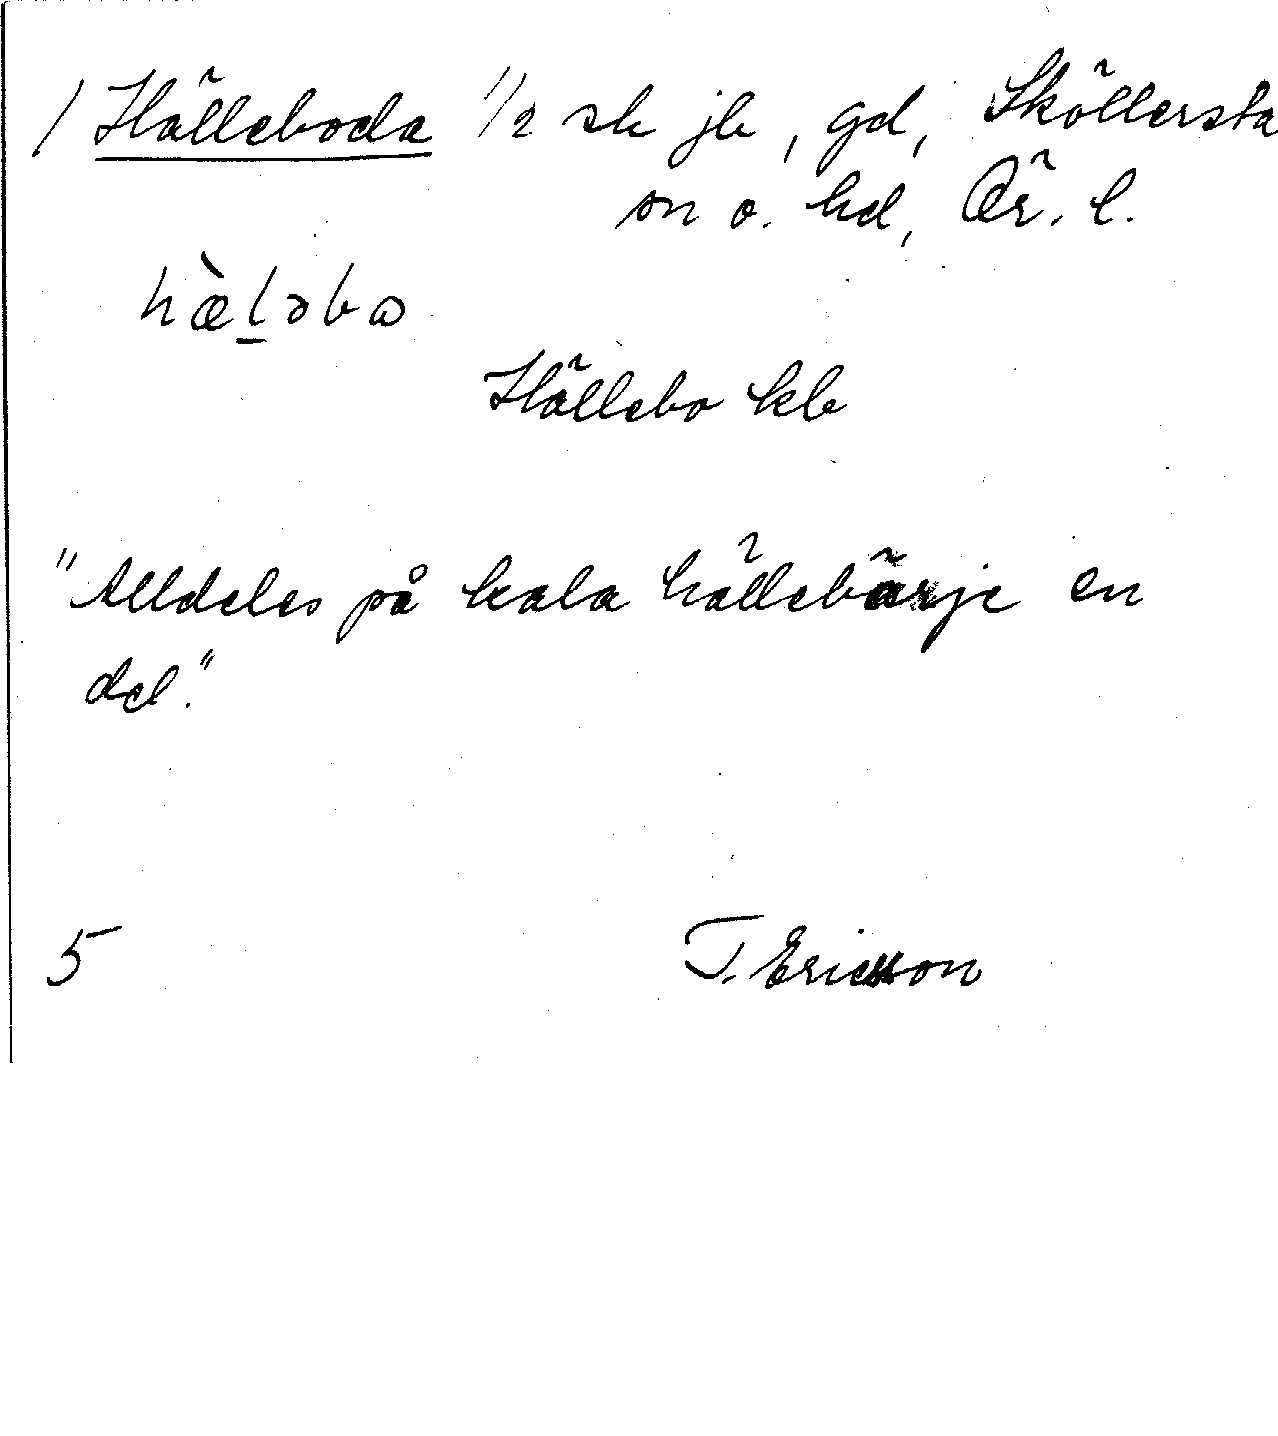 / Hälleboda 1/2 sk jb, gd, Sköllersta
sn o. hd, Ör. l.
hæ̀l̠əbɷ
Hällebo kb
"Alldeles på kala hällebärje en
del."
5 T. Ericsson